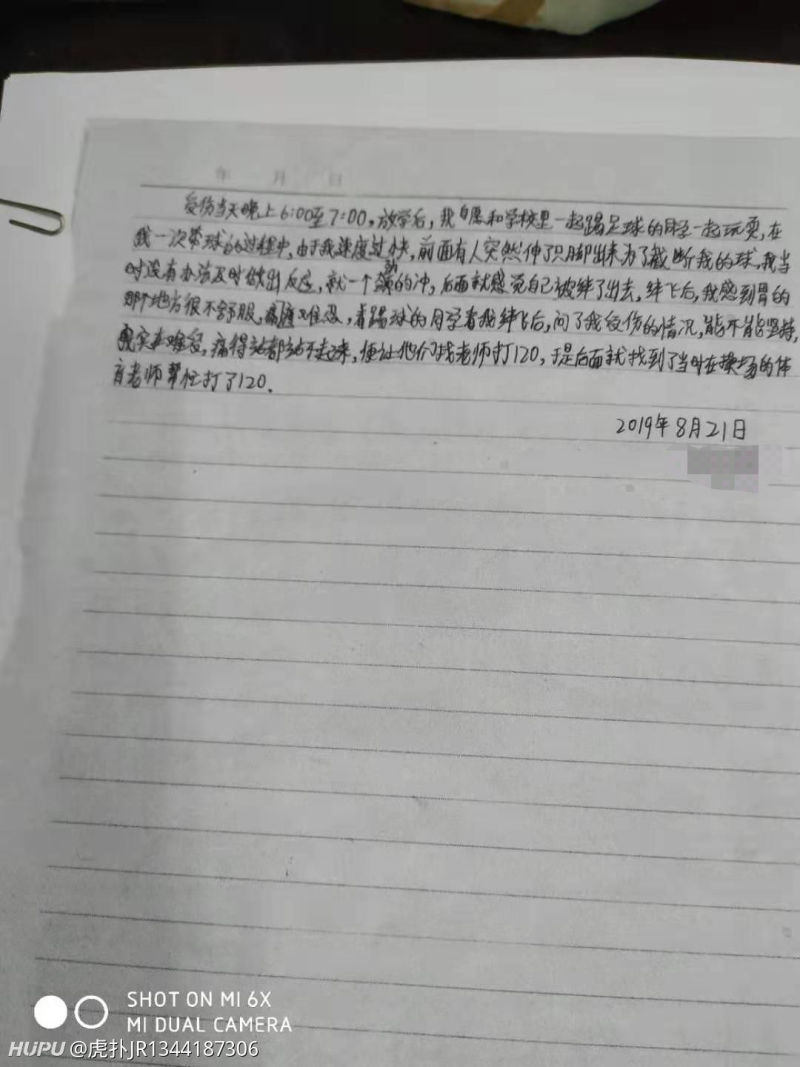 年 月 日
受伤当天晚上6:00至7:00,放学后,我自愿和学校里一起踢足球的同学一起玩耍,在
我一次带球的过程中,由于我速度过快,前面有人突然伸了只脚出来为了截断我的球,我当
时没有办法及时做出反应,就一个的冲,后面就感觉自己被绊了出去,绊飞后,我感到胃的
那个地方很不舒服,疼痛难忍,看踢球的同学看我绊飞后,问了我受伤的情况,能不能坚持,
我实在难受,痛得站都站不起来,便让他们找老师打120,于是后面就找到了当时在操场的体
育老师帮忙打了120.
2019年8月21日
SHOT ON MI 6X
MI DUAL CAMERA
HUPU @虎扑JR1344187306